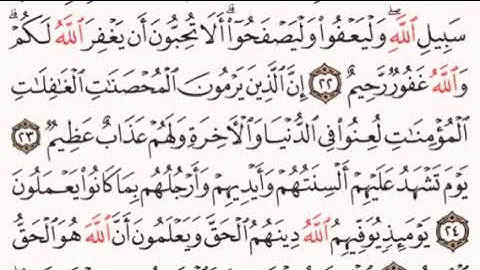 سَبِيلِ اللَّهِ ۖ وَلْيَعْفُوا۟ وَلْيَصْفَحُوٓا۟ ۗ أَلَا تُحِبُّونَ أَن يَغْفِرَ اللَّهُ لَكُمْ ۗ
وَاللَّهُ غَفُورٌ رَّحِيمٌ ٢٢ إِنَّ الَّذِينَ يَرْمُونَ الْمُحْصَنَٰتِ الْغَٰفِلَٰتِ
الْمُؤْمِنَٰتِ لُعِنُوا۟ فِي الدُّنْيَا وَالْآخِرَةِ وَلَهُمْ عَذَابٌ عَظِيمٌ ٢٣
يَوْمَ تَشْهَدُ عَلَيْهِمْ أَلْسِنَتُهُمْ وَأَيْدِيهِمْ وَأَرْجُلُهُم بِمَا كَانُوا۟ يَعْمَلُونَ
٢٤ يَوْمَئِذٍ يُوَفِّيهِمُ اللَّهُ دِينَهُمُ الْحَقَّ وَيَعْلَمُونَ أَنَّ اللَّهَ هُوَ الْحَقُّ